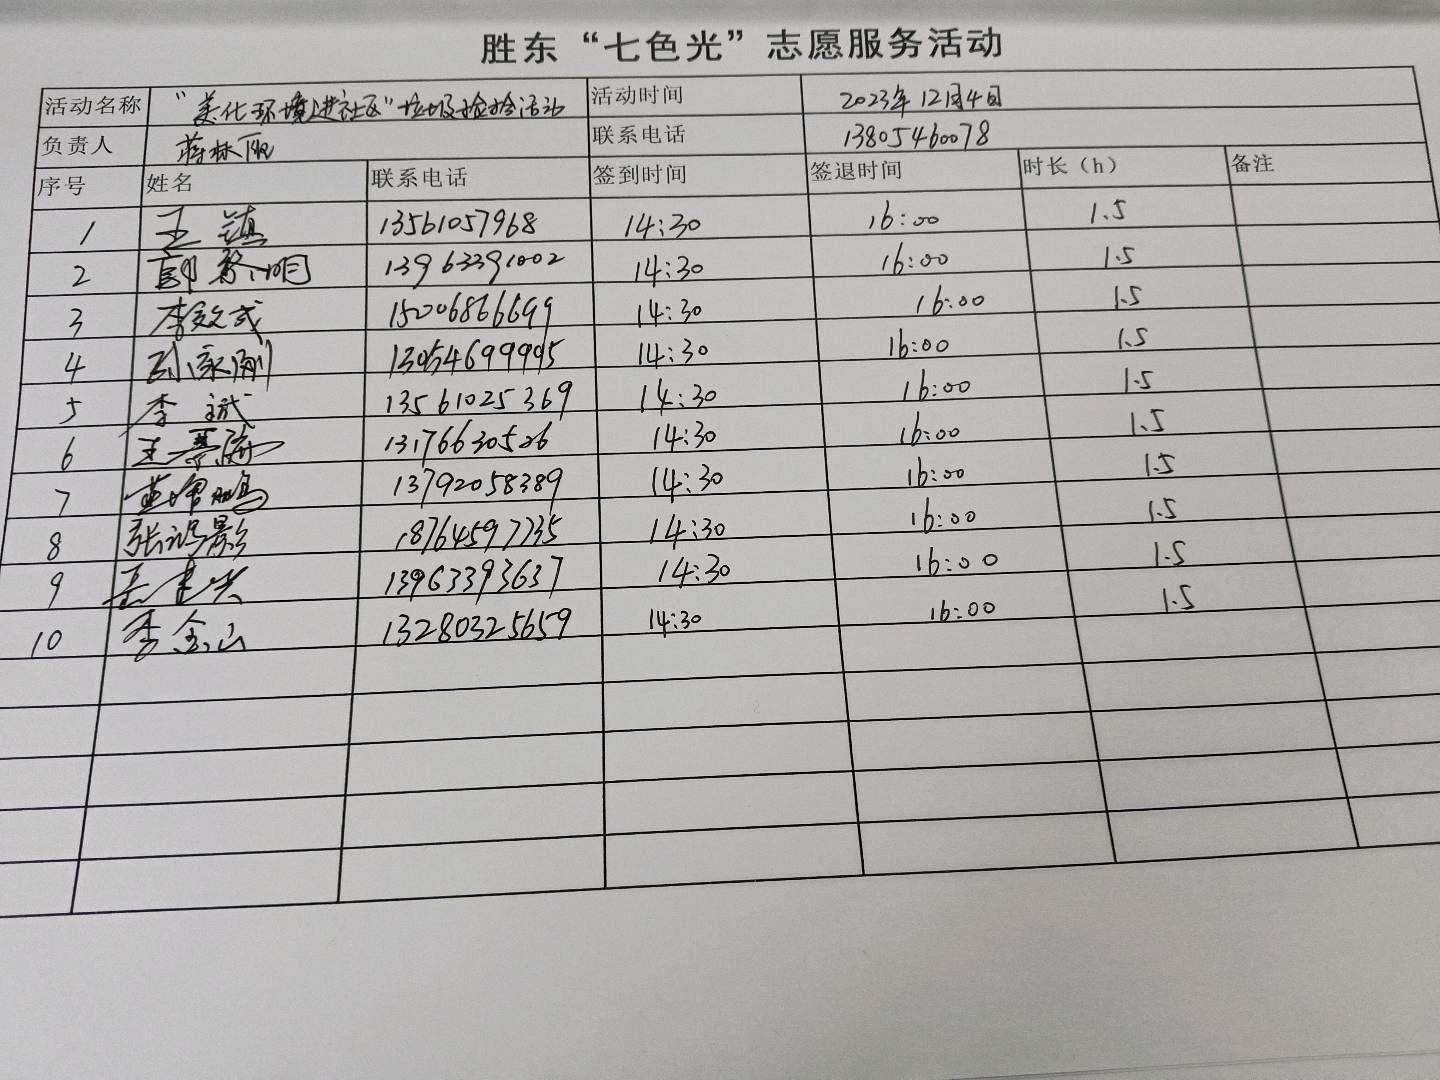 胜东“七色光”志愿服务活动
活动名称 “美化环境进社区”垃圾捡拾活动 活动时间 2023年12月4日
负责人 蒋林 联系电话 13805460078
序号 姓名 联系电话 签到时间 签退时间 时长（h） 备注
1 王镇 13561057968 14:30 16:00 1.5
2 郭黎明 13963391002 14:30 16:00 1.5
3 李效成 15206866699 14:30 16:00 1.5
4 孙家刚 13054699995 14:30 16:00 1.5
5 李斌 13561025369 14:30 16:00 1.5
6 王景 13176630526 14:30 16:00 1.5
7 13792058389 14:30 16:00 1.5
8 张鸿影 18764597735 14:30 16:00 1.5
9 13963393637 14:30 16:00 1.5
10 李金山 13280325659 14:30 16:00 1.5